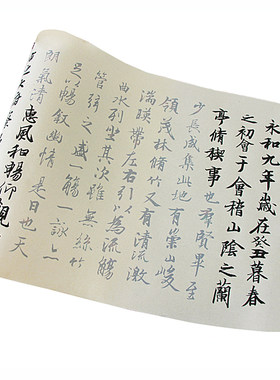 永和九年歲在癸丑暮春
之初會于會稽山陰之蘭
亭脩稧事也羣賢畢至
少長咸集此地有崇山峻
領茂林脩竹又有清流激
湍暎帶左右引以為流觴
曲水列坐其次雖無絲竹
管弦之盛一觴一詠亦
足以暢叙幽情是日也天
朗氣清惠風和暢仰觀